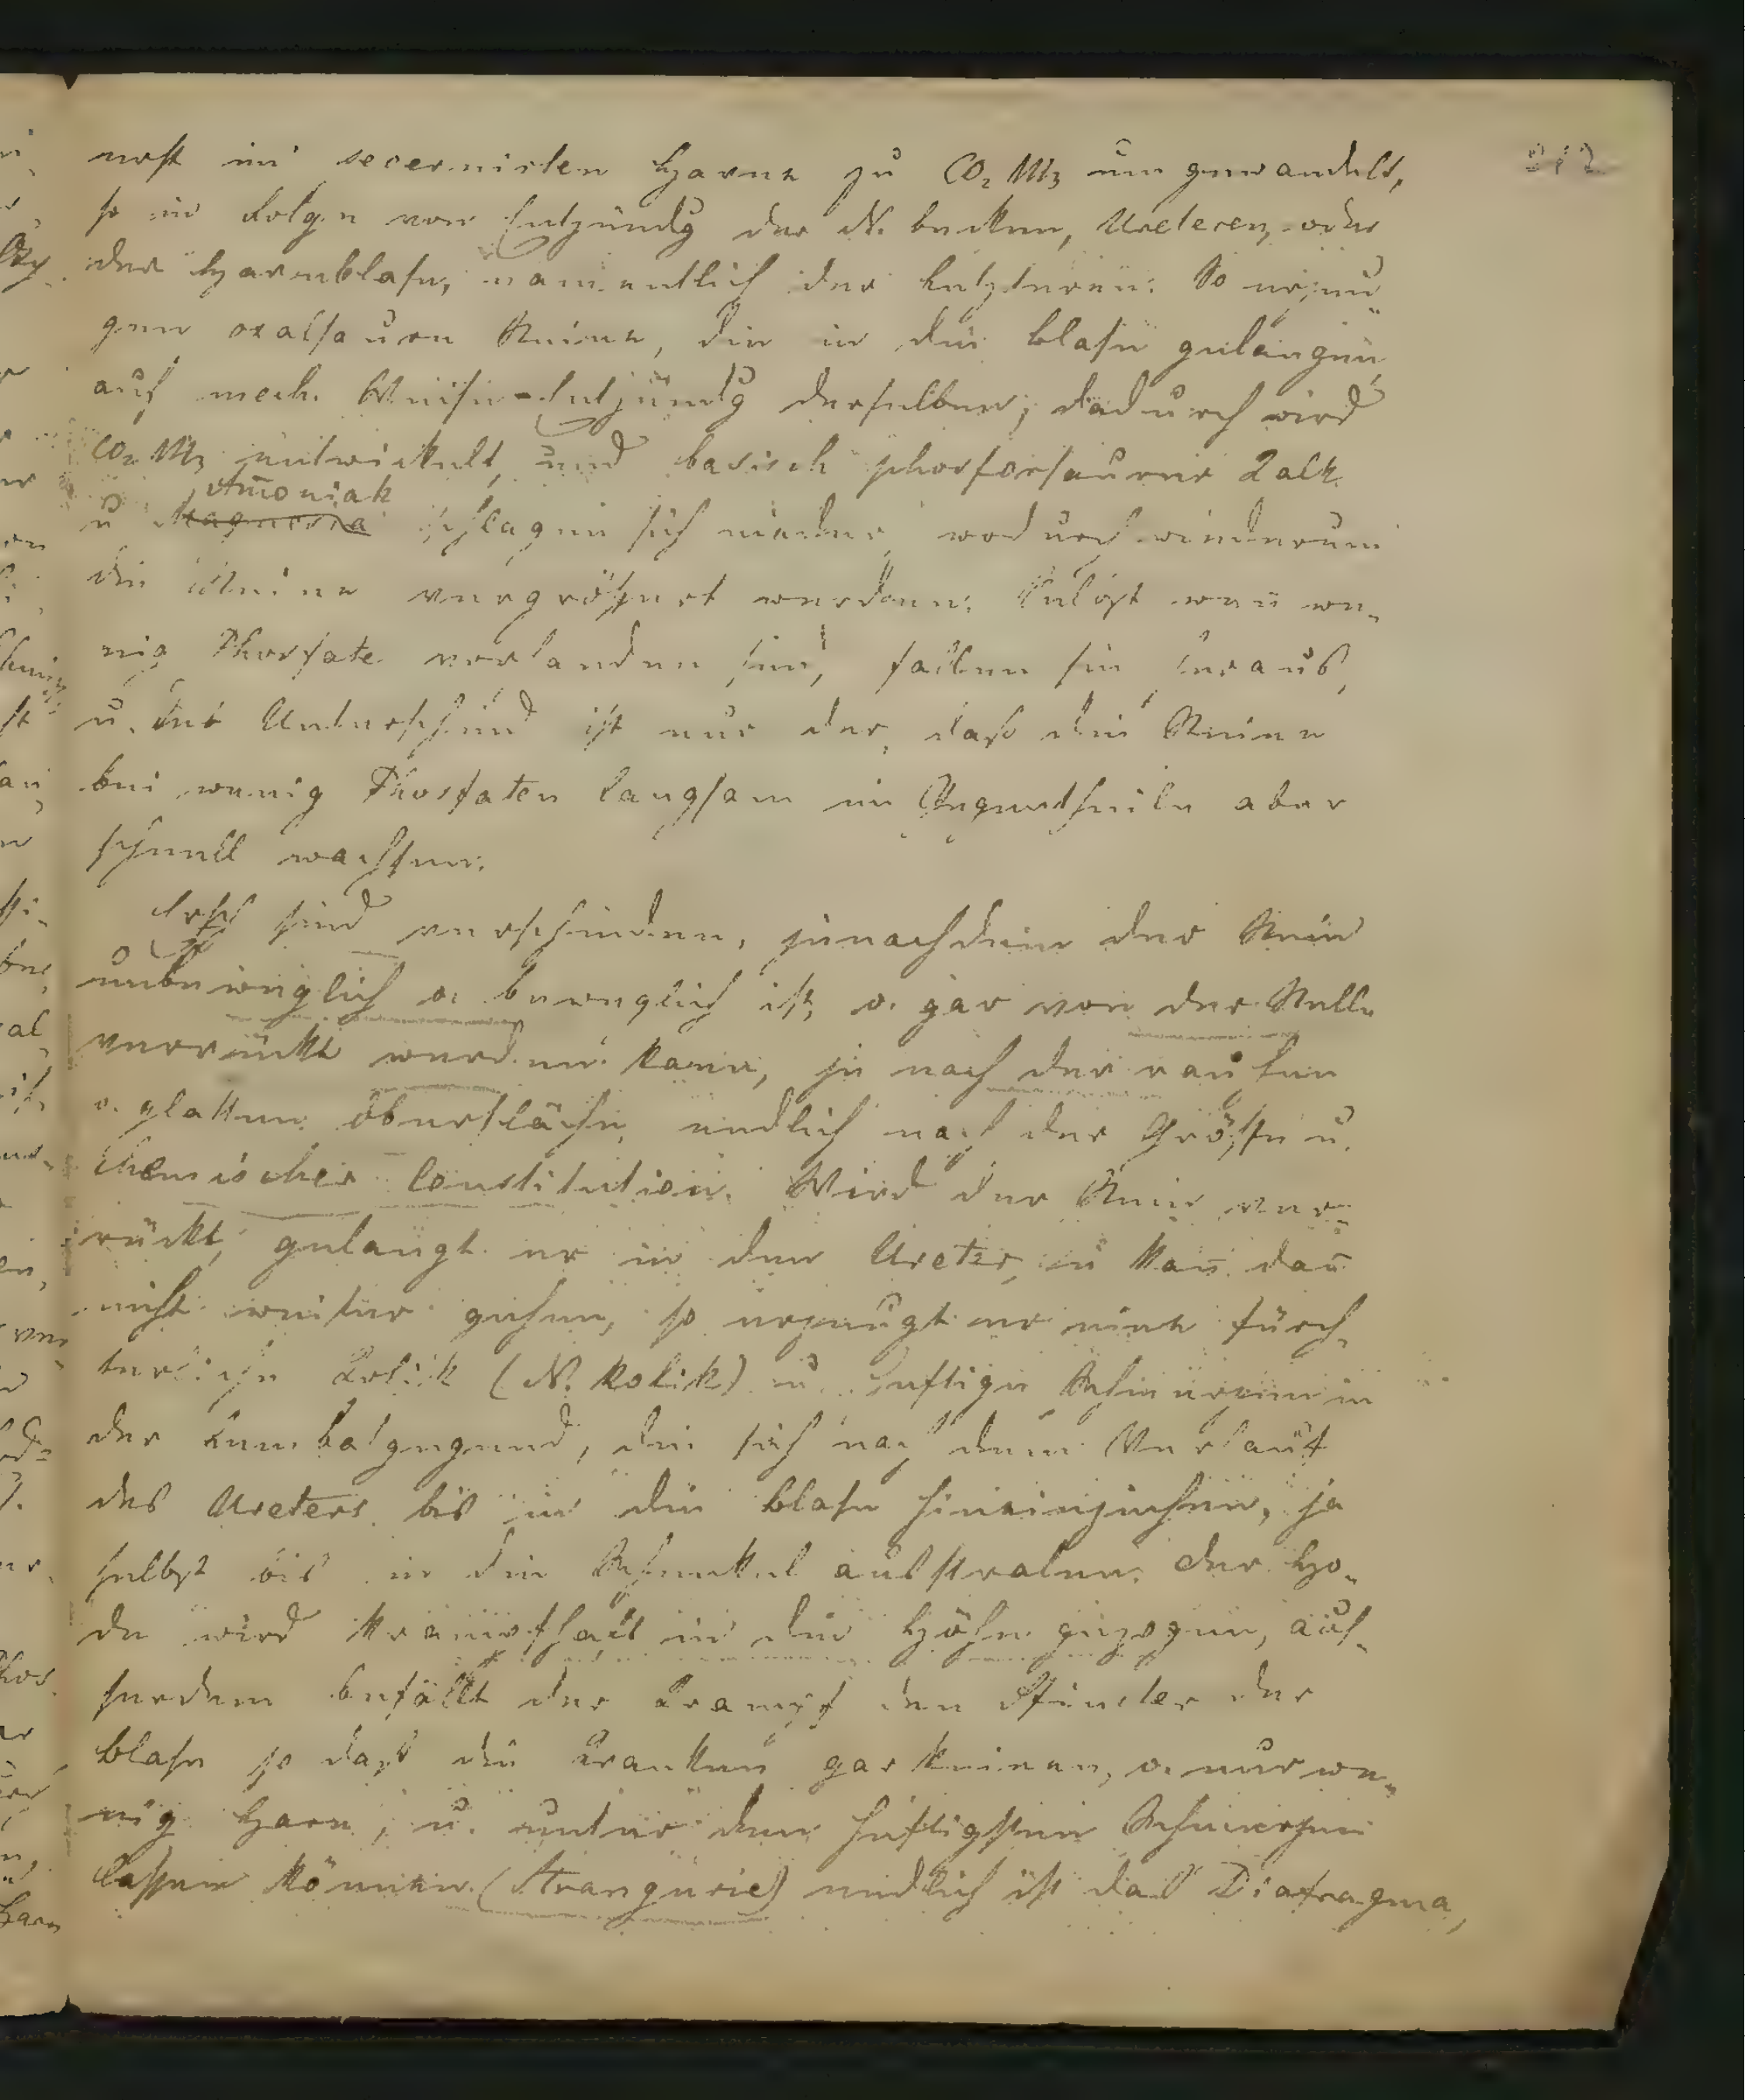 erst im secernirten Harne zu CO₂ NH₃ umgewandelt, 212
so in Folge von Entzündg der N. becken, Ureteren, oder
der Harnblase, namentlich der letzteren. So erzeu
gen oxalsauren Steine, die in die Blase gelangen,
auf mech. Weise - Entzündg derselben; dadurch wird
CO₂ NH₃ entwickelt, und basisch phosforsaurer Kalk
Amoniak
u Magnesia schlagen sich nieder, wodurch wiederum
die Steine vergrößert werden. Selbst wen we-
nig Phosfate vorhanden sind, fallen sie heraus,
u. der Unterschied ist nur der, daß die Steine
bei wenig Phosfaten langsam im Gegentheile aber
schnell wachsen.
Ersch sind verschieden, jenachdem der Stein
unbeweglich o. beweglich ist, o. gar von der Stelle
verrückt werden kann, je nach der rauhen
o. glatten Oberfläche, endlich nach der Größe u.
chemischer Constitution. Wird der Stein ver-
rückt, gelangt er in den Ureter, u kan̄ dan̄
nicht weiter gehen, so erzeugt er eine fürch-
terliche Kolik (N. Kolik) u. heftige Schmerzen in
der Lumbalgegend, die sich nach dem Verlauf
des Ureters bis in die Blase hineinziehen, ja
selbst bis in die Schenkel ausstralen. Der Ho-
de wird krampfhaft in die Höhe gezogen, auß-
serdem befällt der Krampf den Sfincter der
Blase so daß die Kranken gar keinen, o. nur we-
nig Harn, u. unter den heftigsten Schmerzen
lassen können. (Strangurie) endlich ist das Diafragma,